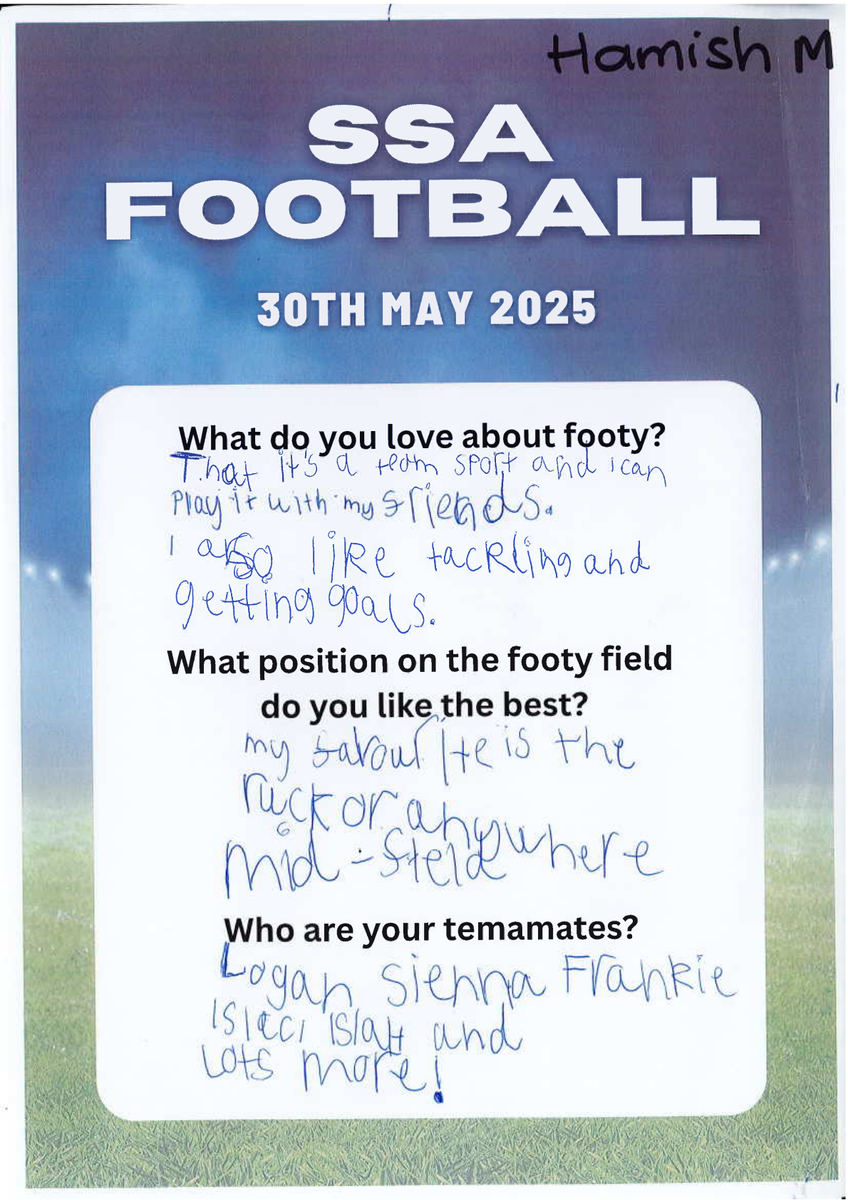 Hamish M
SSA
FOOTBALL
30TH MAY 2025
What do you love about footy?
That it's a team sport and i can
Play it with my friends.
I also like tackling and
getting goals.
What position on the footy field
do you like the best?
my favourite is the
ruck or anywhere
Mid-field
Who are your temamates?
Logan Sienna Frankie
and
Lots more!